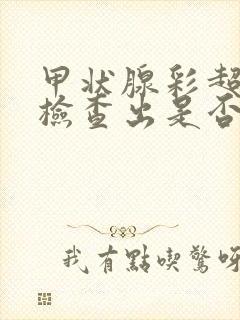 甲状腺彩超
檢查出是否
我有點喫驚呀